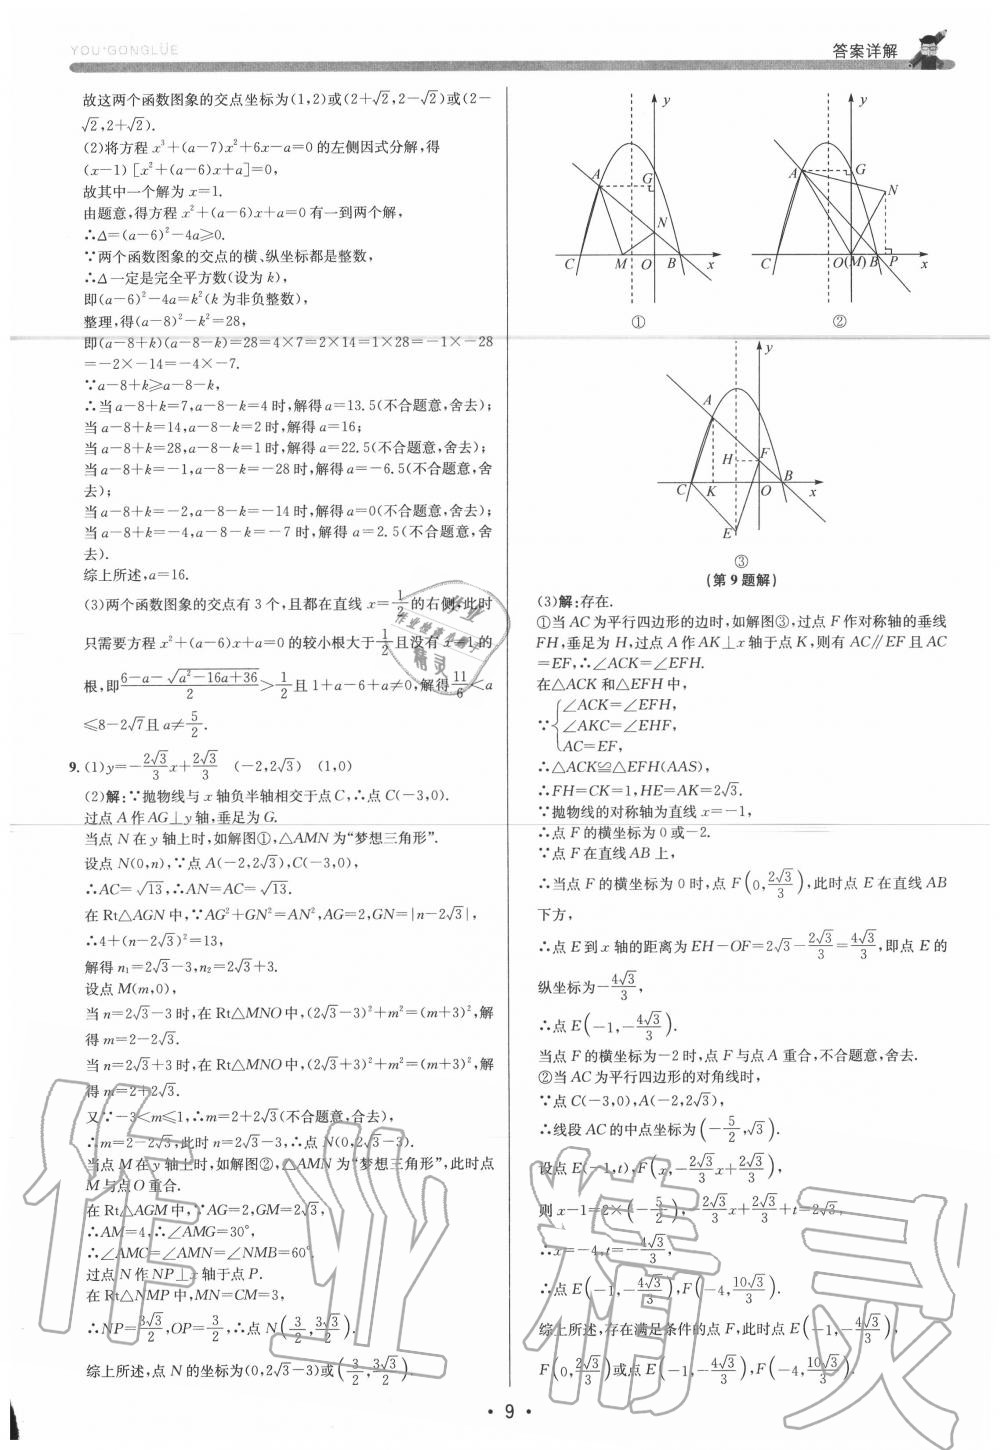 YOU·GONGLÜE
答案详解
故这两个函数图象的交点坐标为(1,2)或(2+√2,2-√2)或(2-
√2,2+√2).
(2)将方程 x³+(a-7)x²+6x-a=0的左侧因式分解,得
(x-1)[x²+(a-6)x+a]=0,
故其中一个解为 x=1.
由题意,得方程 x²+(a-6)x+a=0有一到两个解,
∴Δ=(a-6)²-4a≥0.
∵两个函数图象的交点的横、纵坐标都是整数,
∴Δ一定是完全平方数(设为 k),
即(a-6)²-4a=k²(k为非负整数),
整理,得(a-8)²-k²=28,
即(a-8+k)(a-8-k)=28=4×7=2×14=1×28=-1×-28
=-2×-14=-4×-7.
∵a-8+k≥a-8-k,
∴当a-8+k=7,a-8-k=4时,解得a=13.5(不合题意,舍去);
当a-8+k=14,a-8-k=2时,解得a=16;
当a-8+k=28,a-8-k=1时,解得a=22.5(不合题意,舍去);
当a-8+k=-1,a-8-k=-28时,解得a=-6.5(不合题意,舍
去);
当a-8+k=-2,a-8-k=-14时,解得a=0(不合题意,舍去);
当a-8+k=-4,a-8-k=-7时,解得a=2.5(不合题意,舍
去).
综上所述,a=16.
(3)两个函数图象的交点有3个,且都在直线 x=1/2的右侧,此时
只需要方程 x²+(a-6)x+a=0的较小根大于1/2且没有 x=1的
根,即(6-a-√(a²-16a+36))/2>1/2且1+a-6+a≠0,解得11/6<a
≤8-2√7且a≠5/2.
9. (1)y=-2√3/3x+2√3/3 (-2,2√3) (1,0)
(2)解:∵抛物线与x轴负半轴相交于点C,∴点C(-3,0).
过点A作AG⊥y轴,垂足为G.
当点N在y轴上时,如解图①,△AMN为“梦想三角形”.
设点N(0,n),∵点A(-2,2√3),C(-3,0),
∴AC=√13,∴AN=AC=√13.
在Rt△AGN中,∵AG²+GN²=AN²,AG=2,GN=|n-2√3|,
∴4+(n-2√3)²=13,
解得n₁=2√3-3,n₂=2√3+3.
设点M(m,0),
当n=2√3-3时,在Rt△MNO中,(2√3-3)²+m²=(m+3)²,解
得m=2-2√3.
当n=2√3+3时,在Rt△MNO中,(2√3+3)²+m²=(m+3)²,解
得m=2+2√3.
又∵-3<m≤1,∴m=2+2√3(不合题意,舍去),
∴m=2-2√3,此时n=2√3-3,∴点N(0,2√3-3).
当点M在y轴上时,如解图②,△AMN为“梦想三角形”,此时点
M与点O重合.
在Rt△AGM中,∵AG=2,GM=2√3,
∴AM=4,∴∠AMG=30°,
∴∠AMC=∠AMN=∠NMB=60°.
过点N作NP⊥x轴于点P.
在Rt△NMP中,MN=CM=3,
∴NP=3√3/2,OP=3/2,∴点N(3/2,3√3/2).
综上所述,点N的坐标为(0,2√3-3)或(3/2,3√3/2).
y
A G N C M O B x
①
y
A G N C O(M) B P x
②
y
A H F B C K O x E
③
(第9题解)
(3)解:存在.
①当AC为平行四边形的边时,如解图③,过点F作对称轴的垂线
FH,垂足为H,过点A作AK⊥x轴于点K,则有AC∥EF且AC
=EF,∴∠ACK=∠EFH.
在△ACK和△EFH中,
∠ACK=∠EFH,
∵{∠AKC=∠EHF,
AC=EF,
∴△ACK≌△EFH(AAS),
∴FH=CK=1,HE=AK=2√3.
∵抛物线的对称轴为直线x=-1,
∴点F的横坐标为0或-2.
∵点F在直线AB上,
∴当点F的横坐标为0时,点F(0,2√3/3),此时点E在直线AB
下方,
∴点E到x轴的距离为EH-OF=2√3-2√3/3=4√3/3,即点E的
纵坐标为-4√3/3,
∴点E(-1,-4√3/3).
当点F的横坐标为-2时,点F与点A重合,不合题意,舍去.
②当AC为平行四边形的对角线时,
∵点C(-3,0),A(-2,2√3),
∴线段AC的中点坐标为(-5/2,√3).
设点E(-1,t),F(x,-2√3/3x+2√3/3),
则x-1=2×(-5/2),-2√3/3x+2√3/3+t=2√3,
∴x=-4,t=-4√3/3,
∴点E(-1,-4√3/3),F(-4,10√3/3).
综上所述,存在满足条件的点F,此时点E(-1,-4√3/3),
F(0,2√3/3)或点E(-1,-4√3/3),F(-4,10√3/3).
作业精灵
作业
作业检查小助手
精灵
· 9 ·